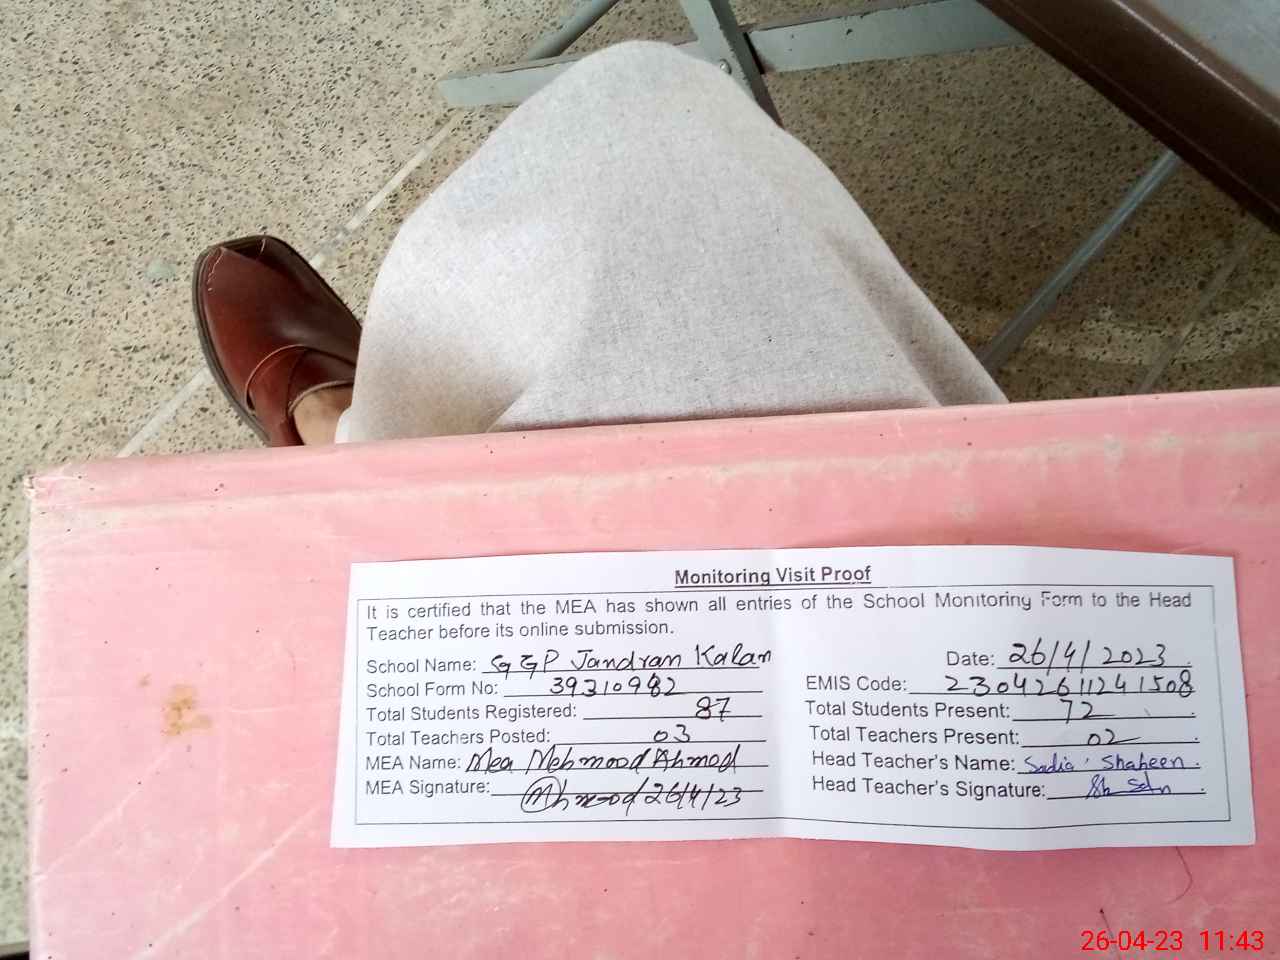 Monitoring Visit Proof
It is certified that the MEA has shown all entries of the School Monitoring Form to the Head
Teacher before its online submission.
School Name: GGP Jandran Kalan Date: 26/4/2023
School Form No: 39310982 EMIS Code: 23042611241508
Total Students Registered: 87 Total Students Present: 72
Total Teachers Posted: 03 Total Teachers Present: 02
MEA Name: Mea Mehmood Ahmad Head Teacher's Name: Sadia Shaheen
MEA Signature: Ahmood 26/4/23 Head Teacher's Signature:
26-04-23 11:43